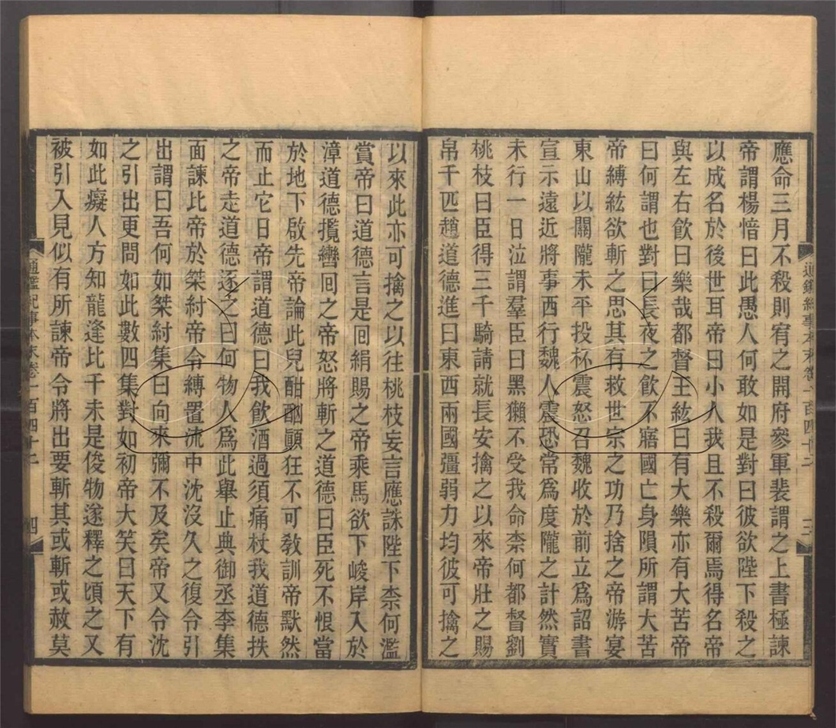 應命三月不殺則宥之開府參軍裴謂之上書極諫
帝謂楊愔曰此愚人何敢如是對曰彼欲陛下殺之
以成名於後世耳帝曰小人我且不殺爾焉得名帝
與左右飲曰樂哉都督王紘曰有大樂亦有大苦帝
曰何謂也對曰長夜之飲不寤國亡身隕所謂大苦
帝縛紘欲斬之思其有救世宗之功乃捨之帝游宴
東山以關隴未平投杯震怒召魏收於前立爲詔書
宣示遠近將事西行魏人震恐常爲度隴之計然實
未行一日泣謂羣臣曰黑獺不受我命柰何都督劉
桃枝曰臣得三千騎請就長安擒之以來帝壯之賜
帛千匹趙道德進曰東西兩國彊弱力均彼可擒之
以來此亦可擒之以往桃枝妄言應誅陛下柰何濫
賞帝曰道德言是囘絹賜之帝乘馬欲下峻岸入於
漳道德攬轡囘之帝怒將斬之道德曰臣死不恨當
於地下啟先帝論此兒酣酗顚狂不可敎訓帝默然
而止它日帝謂道德曰我飲酒過須痛杖我道德抶
之帝走道德逐之曰何物人爲此舉止典御丞李集
面諫比帝於桀紂帝令縛置流中沈沒久之復令引
出謂曰吾何如桀紂集曰向來彌不及矣帝又令沈
之引出更問如此數四集對如初帝大笑曰天下有
如此癡人方知龍逢比干未是俊物遂釋之頃之又
被引入見似有所諫帝令將出要斬其或斬或赦莫
通鑑紀事本末卷一百四十二
四